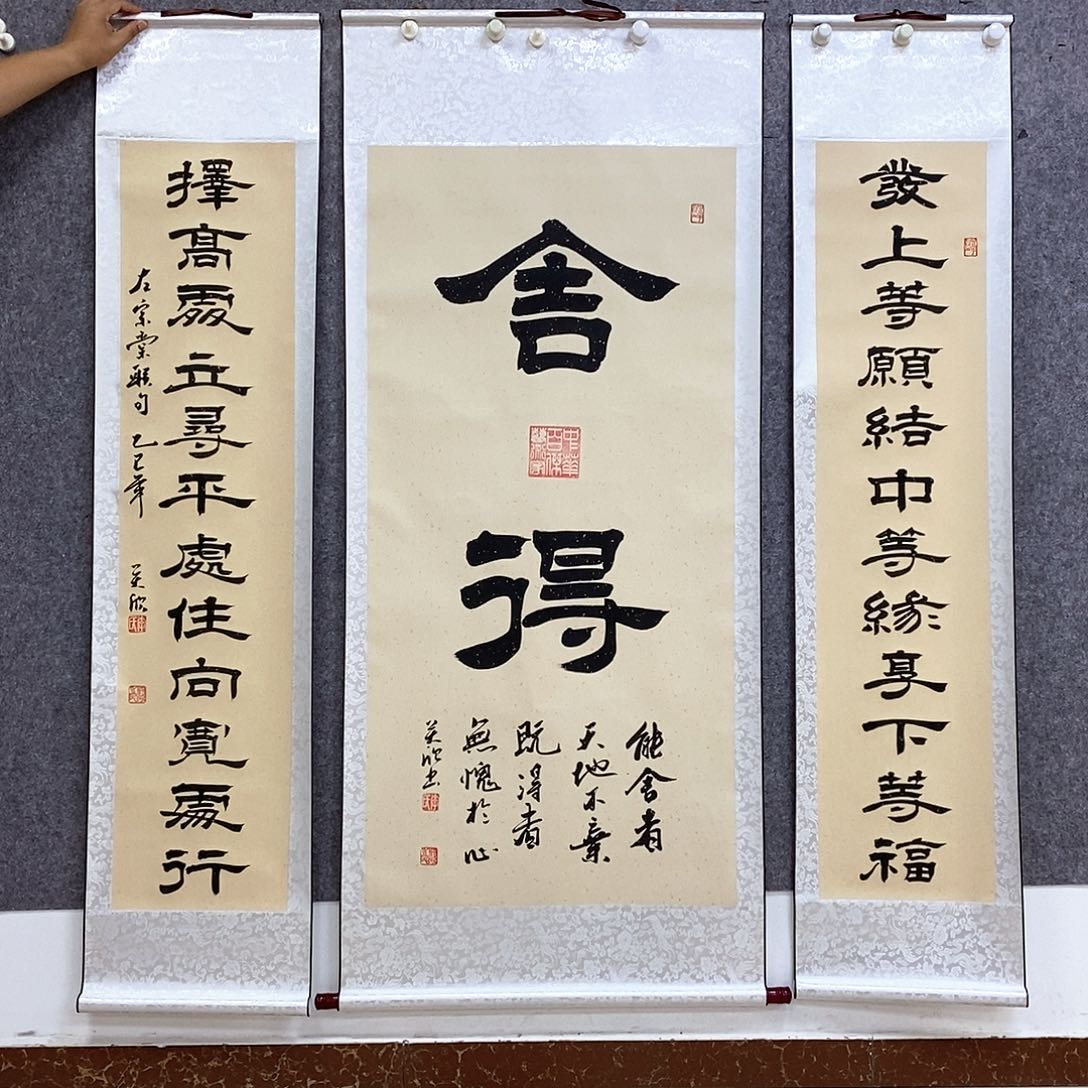 發上等願結中等緣享下等福
舍得
能舍者
天地不棄
既得者
無愧於心
英欣书
擇高處立尋平處住向寬處行
左宗棠联句 乙巳年 英欣